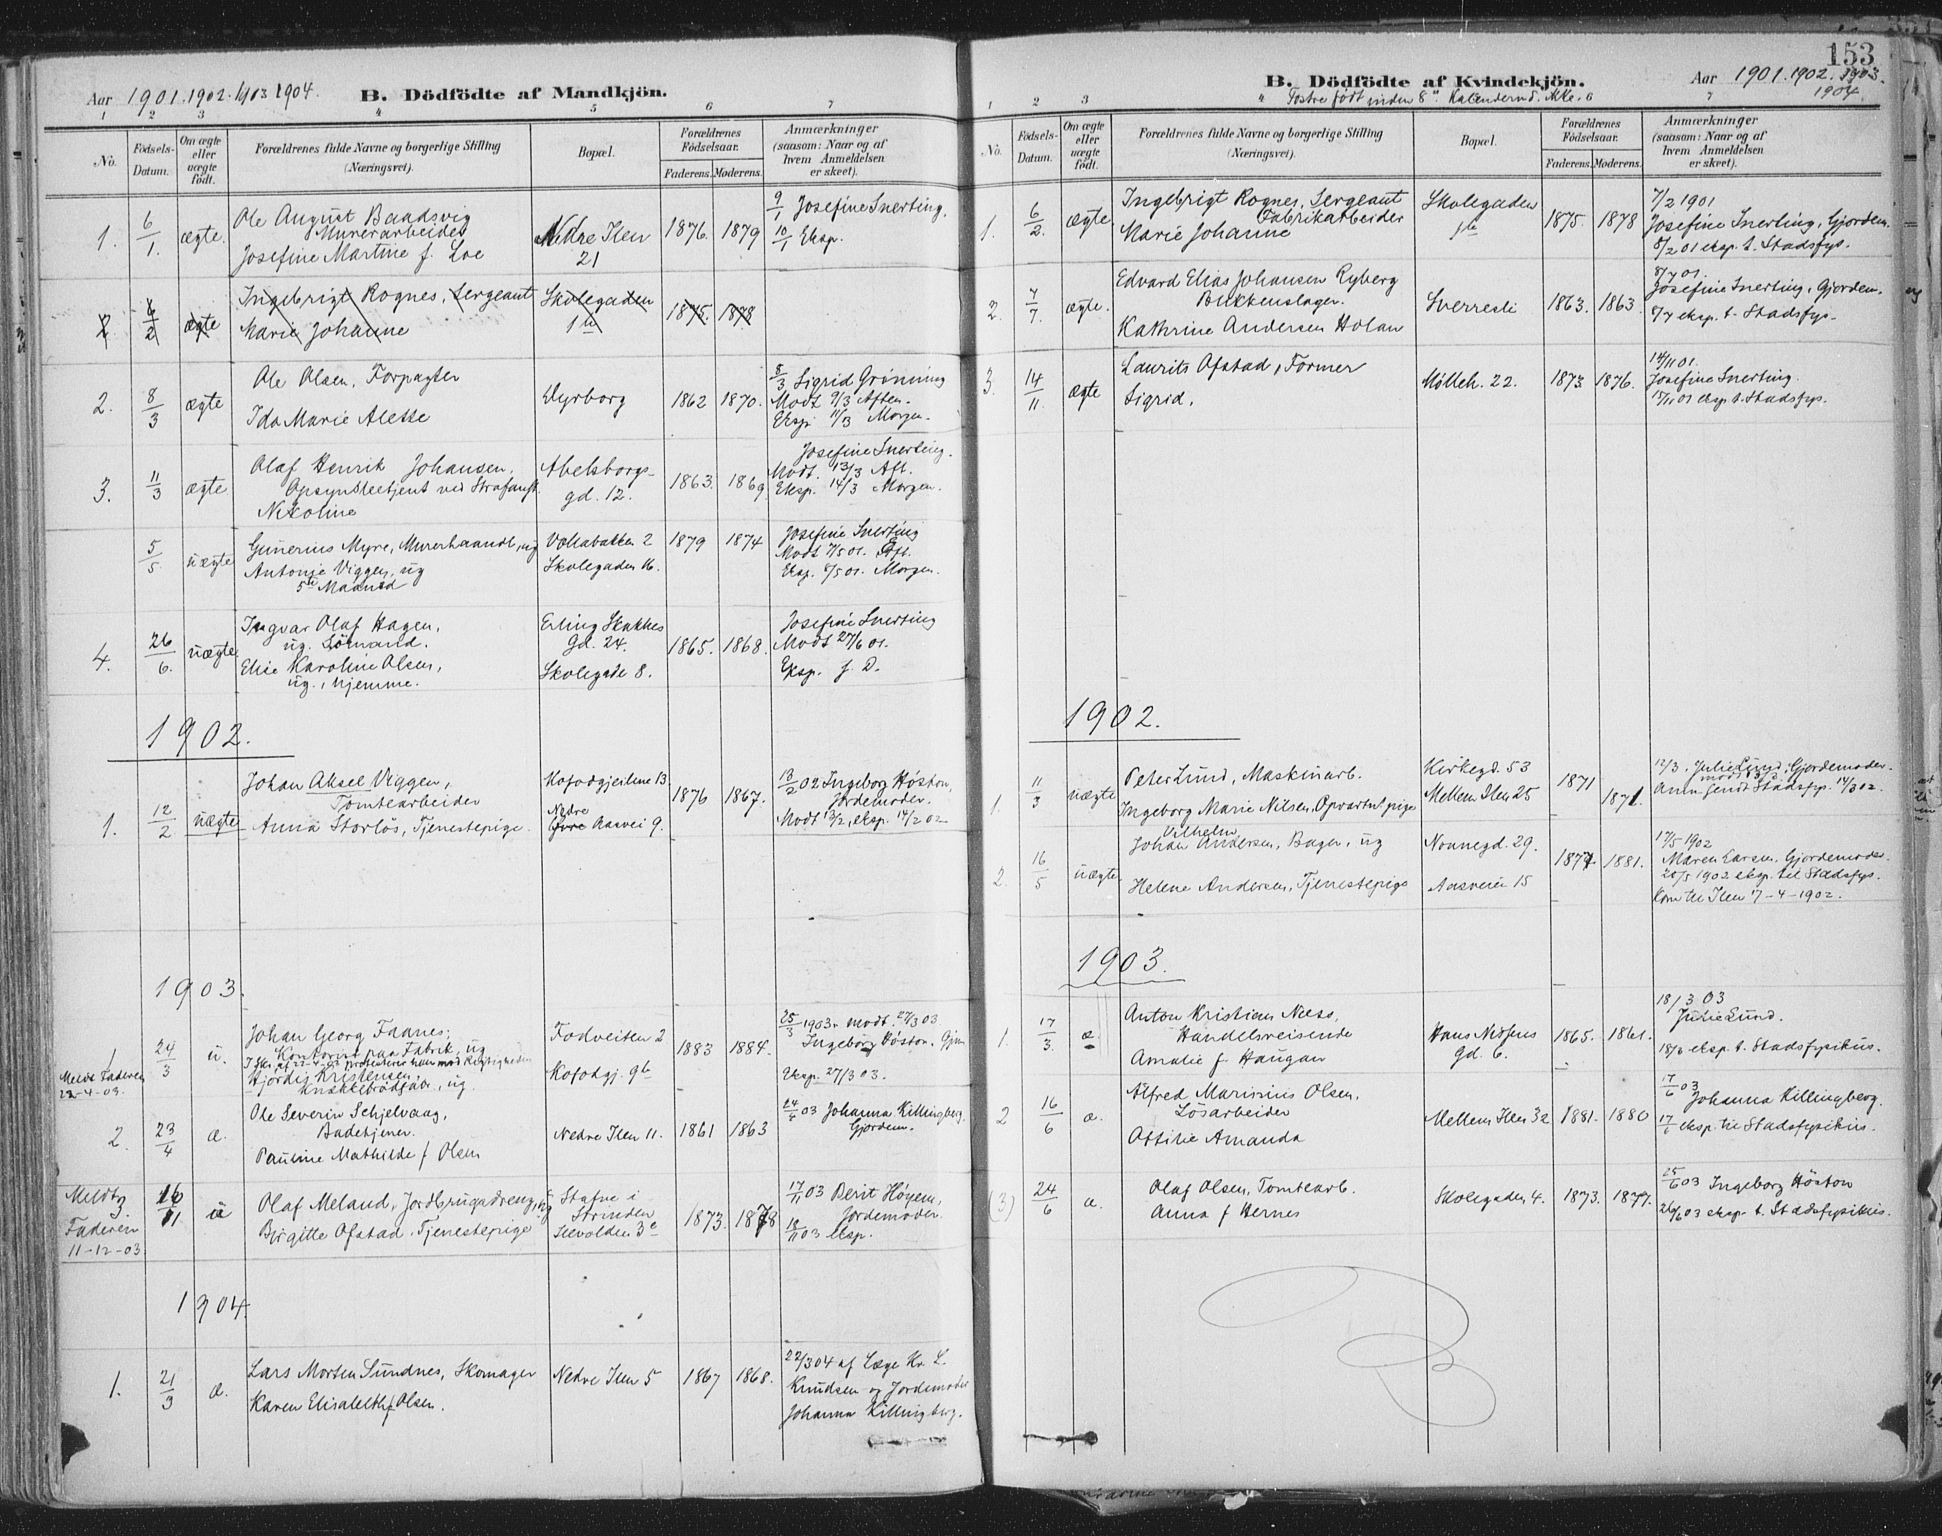 Aar 1901. 1902. 1903 1904. B. Dödfödte af Mandkjön.
1 2 3 4 5 6 7
No. Födsels-Datum. Om ægte eller uægte födt. Forældrenes fulde Navne og borgerlige Stilling (Næringsvei). Bopæl. Forældrenes Födselsaar. Faderens. Moderens. Anmærkninger (saasom: Naar og af hvem Anmeldelsen er skeet).
1. 6/1. ægte. Ole August Baadsvig
Murerarbeider
Josefine Martine f. Loe
Nedre Ilen
21
1876. 1879
9/1 Josefine Snerting.
10/1 Eksp.
2 6/2 ægte Ingebrigt Rognes, Sergeant
Marie Johanne
Skolegaden
1b
1875. 1878
2. 8/3 ægte Ole Olsen, Forpagter
Ida Marie Alette
Dyrborg
1862 1870.
8/3 Sigrid Grönning
Modt 9/3 Aften.
Eksp. 11/3 Morgen.
3. 11/3 ægte Olaf Henrik Johansen,
Opsynsbetjent ved Strafanst.
Nikoline
Abelsborgs-
gd. 12.
1863. 1869
Josefine Snerting.
Modt. 13/3 Aft.
Eksp. 14/3 Morgen.
5/5 uægte Gunerius Myre, Murerhaandl., ug
Antonie Viggen, ug
5te Maaned
Vollabakken 2
Skolegaden 16.
1879 1874
Josefine Snerting
Modt 7/5 01. Aft.
Eksp. 8/5 01. Morgen.
4. 26/6. uægte Ingvar Olaf Hagen,
ug. Sömand.
Elise Karoline Olsen,
ug., hjemme.
Erling Skakkes
Gd. 24.
Skolegade 8.
1865. 1868.
Josefine Snerting
Modt 27/6 01.
Eksp. f. D.
1902.
1. 12/2 uægte Johan Aksel Viggen,
Tomtearbeider
Anna Storlös, Tjenestepige.
Kofodgjeilene 13
Nedre
Övre Aasvei 9.
1876 1867.
13/2 02 Ingeborg Höston,
Jordemoder.
Modt 13/2, eksp. 14/2 02
1903.
1 24/3 u. Johan Georg Faanes,
Kontorist paa Fabrik, ug
Hjördis Kristensen,
Knækkebrödfabr., ug.
Meldt Faderen
22-4-03.
Fodveiten 2
Kofodgj. 9b
1883 1884.
25/3 1903. modt. 27/3 03
Ingeborg Höston. Gjm
Eksp. 27/3 03.
2. 23/4 æ. Ole Severin Schjelvaag,
Badetjener.
Pauline Mathilde f Olsen
Nedre Ilen 11.
1861 1863
24/4 03 Johanna Killingberg.
Gjordem.
Meldt
3. 16/11 u Olaf Meland, Jordbrugsdreng, ug
Birgitte Ofstad, Tjenestepige
Faderen
11-12-03.
Stavne i
Strinden
Ilevolden 3c
1873. 1878
17/11 03 Berit Höyem,
Jordemoder.
18/11 03 eksp.
1904.
1. 21/3 æ. Lars Morten Sundnes, Skomager
Karen Elisabeth f Olsen.
Nedre Ilen 5
1867 1868.
22/3 04 af Læge Kr. L.
Knudsen og Jordemoder
Johanna Killingberg.
153
B. Dödfödte af Kvindekjön. Aar 1901. 1902. 1903.
1904.
Fostre født inden 8de Kalenderm. ikke.
1 2 3 4 6 7
No. Födsels-Datum. Om ægte eller uægte födt. Forældrenes fulde Navne og borgerlige Stilling (Næringsvei). Bopæl. Forældrenes Födselsaar. Faderens. Moderens. Anmærkninger (saasom: Naar og af hvem Anmeldelsen er skeet).
1. 6/2. ægte Ingebrigt Rognes, Sergeant
Fabrikarbeider
Marie Johanne
Skolegaden
1b
1875. 1878
7/2 1901
Josefine Snerting, Gjordem.
8/2 01 eksp. t. Stadsfys.
2. 7/7 ægte. Edvard Elias Johansen Ryberg
Blikkenslager.
Kathrine Andersen Holan
Sverresli
1863. 1863
8/7 01.
Josefine Snerting, Gjordem.
8/7 eksp. t. Stadsfys.
3. 14/11 ægte Laurits Ofstad, Former
Sigrid.
Mölleb. 22.
1873 1876.
14/11 01.
Josefine Snerting.
15/11 01 eksp. t. Stadsfys.
1902.
1 11/3 uægte Peter Lund, Maskinarb.
Ingeborg Marie Nilsen, Opvartn. pige
Kirkegd. 53
Mellem Ilen 25
1871 1871.
12/3. Julie Lund, Gjordemoder.
Anm. sendt Stadsfys. 14/3 02.
2. 16/5 uægte Vilhelm
Johan Andersen, Bager, ug
Helene Andersen, Tjenestepige
Nonnegd. 29.
Aasveien 15
1877. 1881.
17/5 1902
Maren Larsen, Gjordemoder.
20/5 1902 eksp. til Stadsfys.
Kom til Ilen 17-4-1902.
1903.
1. 17/3 æ. Anton Kristian Næss,
Handelsreisende
Amalie f Haugan
Hans Nissens
Gd. 6.
1865. 1861.
18/3 03
Julie Lund.
18/3 eksp. t. Stadsfysikus.
2 16/6 æ. Alfred Marinius Olsen,
Lösarbeider
Ottilie Amanda
Mellem Ilen 32
1881. 1880
17/6 03
Johanna Killingberg.
17/6 eksp. til Stadsfysikus.
(3) 24/6 æ. Olaf Olsen, Tomtearb.
Anna f Hernes
Skolegaden 4.
1873. 1877.
25/6 03 Ingeborg Höston
26/6 03 eksp. t. Stadsfysikus.